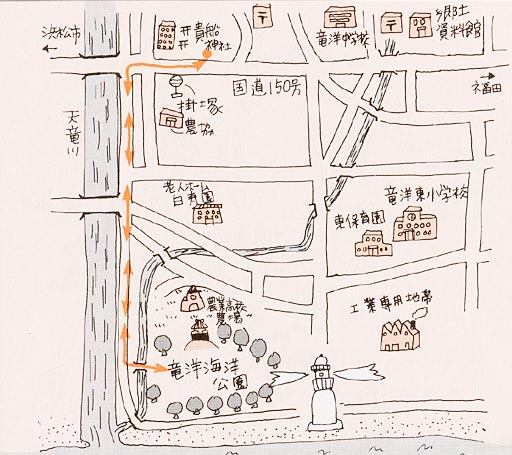 浜松市
貴船
神社
〒
竜洋中学校
〒
郷土
資料館
国道150号
福田
掛塚
農協
天竜川
老人ホーム
白寿園
竜洋東小学校
東保育園
農業高校
農場
工業専用地帯
竜洋海洋
公園